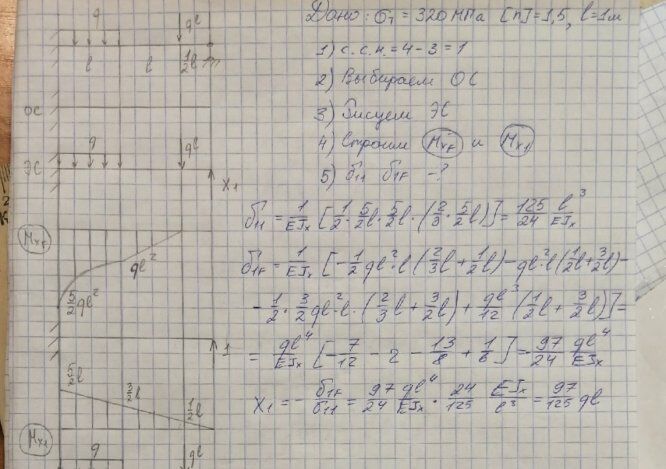 Дано: σт = 320 МПа [n]=1,5, l=1м
1) с.с.н. = 4 - 3 = 1
2) Выбираем ОС
3) Рисуем ЭС
4) Строим MxF и Mx1
5) δ11 δ1F - ?
δ11 = 1/EJx [1/2 · 5/2l · 5/2l · (2/3 · 5/2l)] = 125/24 l³/EJx
δ1F = 1/EJx [-1/2 ql²·l (2/3l + 1/2l) - ql²·l (1/2l + 3/2l) -
- 1/2 · 3/2 ql²·l · (2/3l + 3/2l) + ql³/12 (1/2l + 3/2l)] =
= ql⁴/EJx [-7/12 - 2 - 13/8 + 1/6] = -97/24 ql⁴/EJx
X1 = - δ1F/δ11 = 97/24 ql⁴/EJx · 24/125 EJx/l³ = 97/125 ql
q
ql
l
l
1/2l
ОС
q
ql
ЭС
X1
MxF
ql²
5/2 ql²
1
5/2l
3/2l
1/2l
Mx1
q
ql